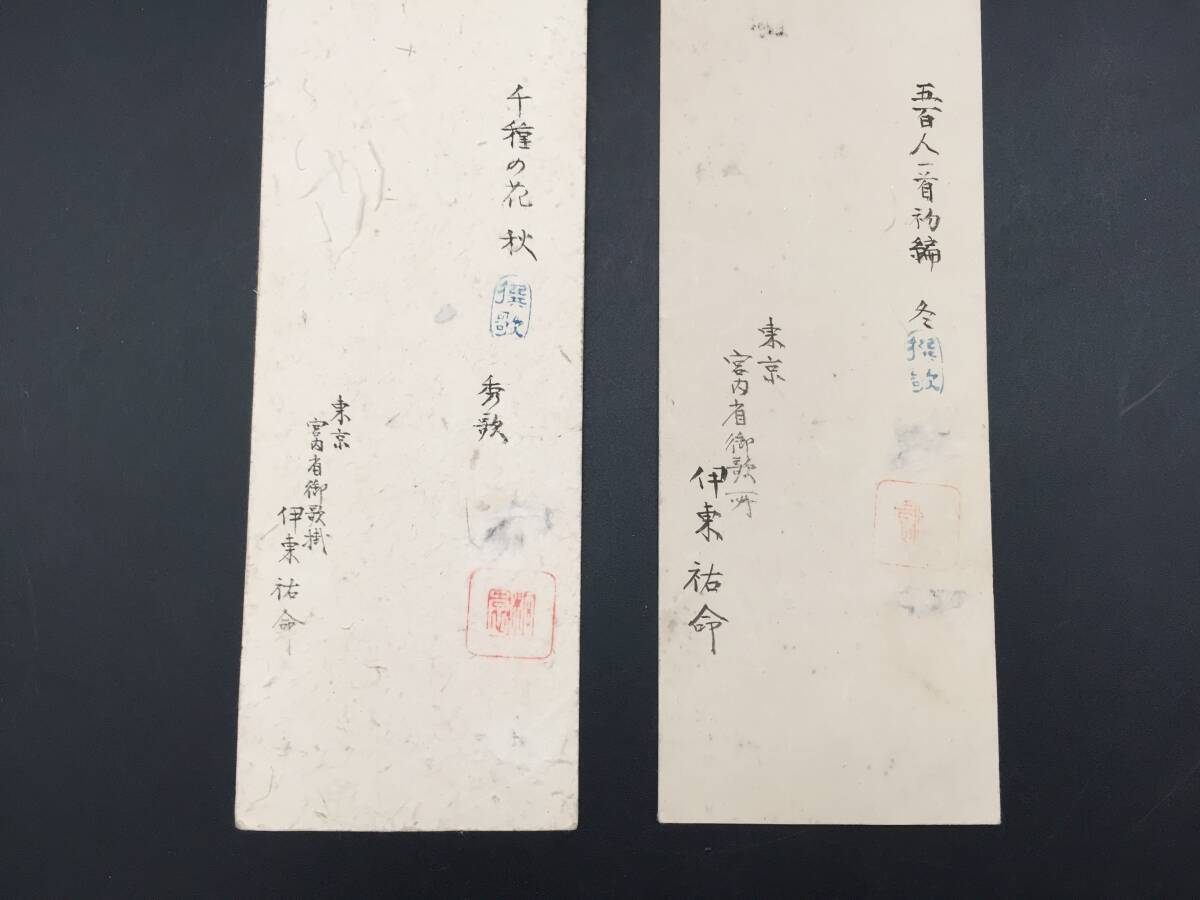 五百人一首初編 冬
撰歌
東京
宮内省御歌所
伊東祐命
千種の花 秋
撰歌
秀歌
東京
宮内省御歌掛
伊東祐命